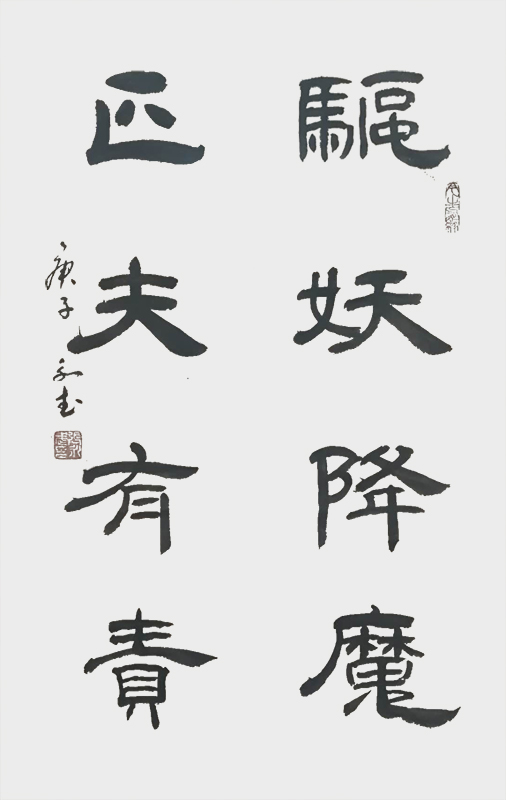 驅妖降魔
匹夫有責
庚子